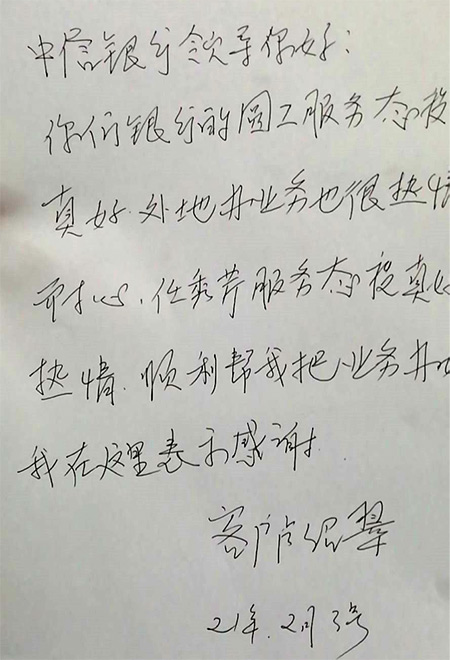 中信银行领导你好：
你们银行的员工服务态度
真好.外地办业务也很热情
耐心、任秀芹服务态度真心
热情.顺利帮我把业务办
我在这里表示感谢.
客户
21年.2月3号